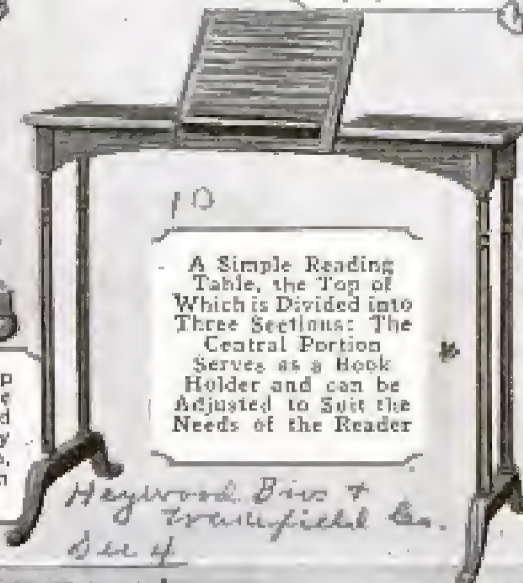 10
A Simple Reading
Table, the Top of
Which is Divided into
Three Sections: The
Central Portion
Serves as a Book
Holder and can be
Adjusted to Suit the
Needs of the Reader
Heywood Bros +
Wakefield Co.